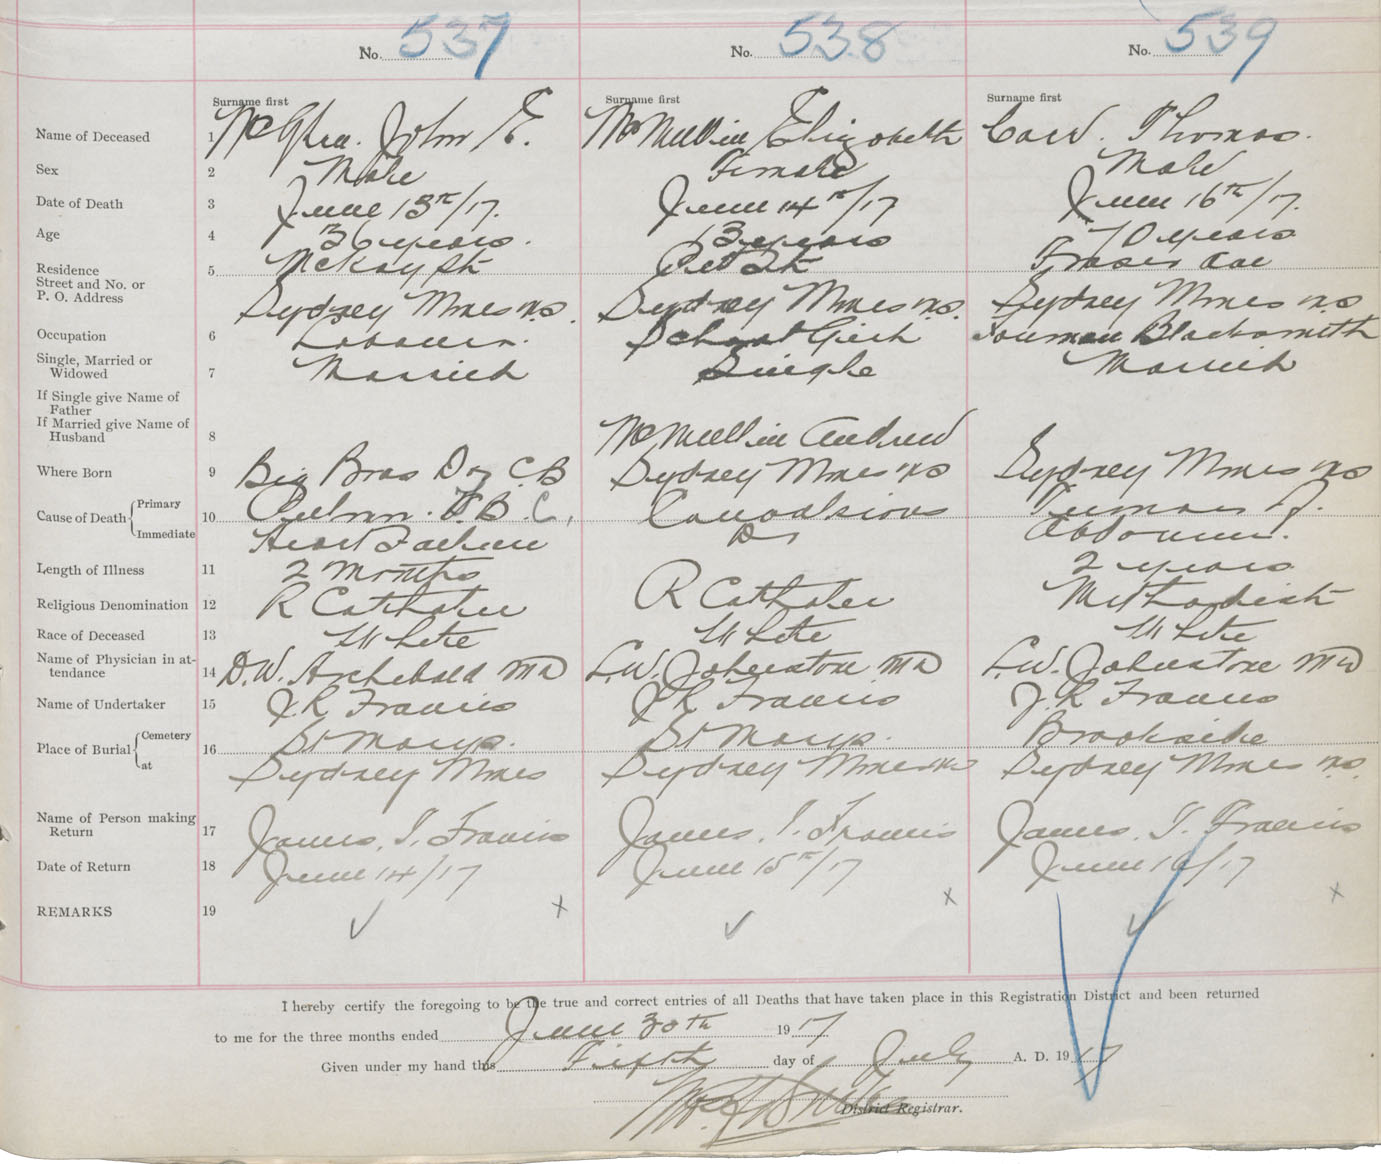 No. 537 No. 538 No. 539
Surname first Surname first Surname first
Name of Deceased 1 John E. McMullin Elizabeth Thomas.
Sex 2 Male Female Male
Date of Death 3 June 13th/17. June 14th/17 June 16th/17.
Age 4 36 years. 13 years 70 years
Residence 5 McKay St Pitt St Fraser Ave
Street and No. or
P. O. Address Sydney Mines N.S. Sydney Mines N.S. Sydney Mines N.S.
Occupation 6 Labourer. School Girl Foreman Blacksmith
Single, Married or
Widowed 7 Married Single Married
If Single give Name of
Father
If Married give Name of
Husband 8 McMullin Andrew
Where Born 9 Big Bras Dor C.B Sydney Mines NS Sydney Mines NS
Cause of Death Primary 10 Pulmn. T.B.C. Convulsions Tumor of
Immediate Heart Failure Abdomen.
Length of Illness 11 2 months 2 years
Religious Denomination 12 R Catholic R Catholic Methodist
Race of Deceased 13 White White White
Name of Physician in at-
tendance 14 D.W. Archibald MD L.W. Johnstone MD L.W. Johnstone MD
Name of Undertaker 15 J.R Francis J R Francis J.R Francis
Place of Burial Cemetery 16 St Marys. St Marys. Brookside
at Sydney Mines Sydney Mines NS Sydney Mines N.S.
Name of Person making
Return 17 James. I. Francis James. I. Francis James. I. Francis
Date of Return 18 June 14/17 June 15th/17 June 16/17
REMARKS 19
I hereby certify the foregoing to be the true and correct entries of all Deaths that have taken place in this Registration District and been returned
to me for the three months ended June 30th 1917
Given under my hand this Fifth day of July A. D. 1917
District Registrar.